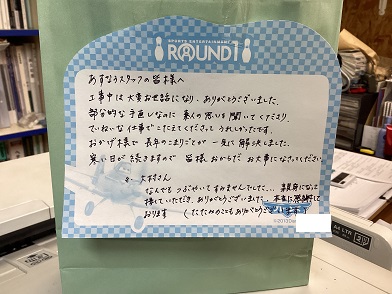 SPORTS ENTERTAINMENT
ROUND1
あすなろスタッフの皆様へ
工事中は大変お世話になり、ありがとうございました。
部分的な手直しなのに 素人の思いを聞いてくださり
ていねいな仕事でこたえてくださり うれしかったです。
おかげ様で 長年のこまりごとが 一気に解決しました。
寒い日が続きますので 皆様 おからだ お大事になさってください
大村さん
なんでもつぶせいてすみませんでした… 親身になって
接していただき、ありがとうございました。本当に感謝して
おります
ありがとうございます
A4 LTR